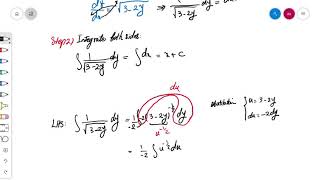 dy/dx = √(3-2y) ⇒ 1/√(3-2y) dy = dx
Step 2) Integrate both sides
∫ 1/√(3-2y) dy = ∫ dx = x + c
du
LHS: ∫ 1/√(3-2y) dy = 1/-2 ∫ -2(3-2y)^(-1/2) dy
u^(-1/2)
{ u = 3-2y
du = -2dy
= 1/-2 ∫ u^(-1/2) du